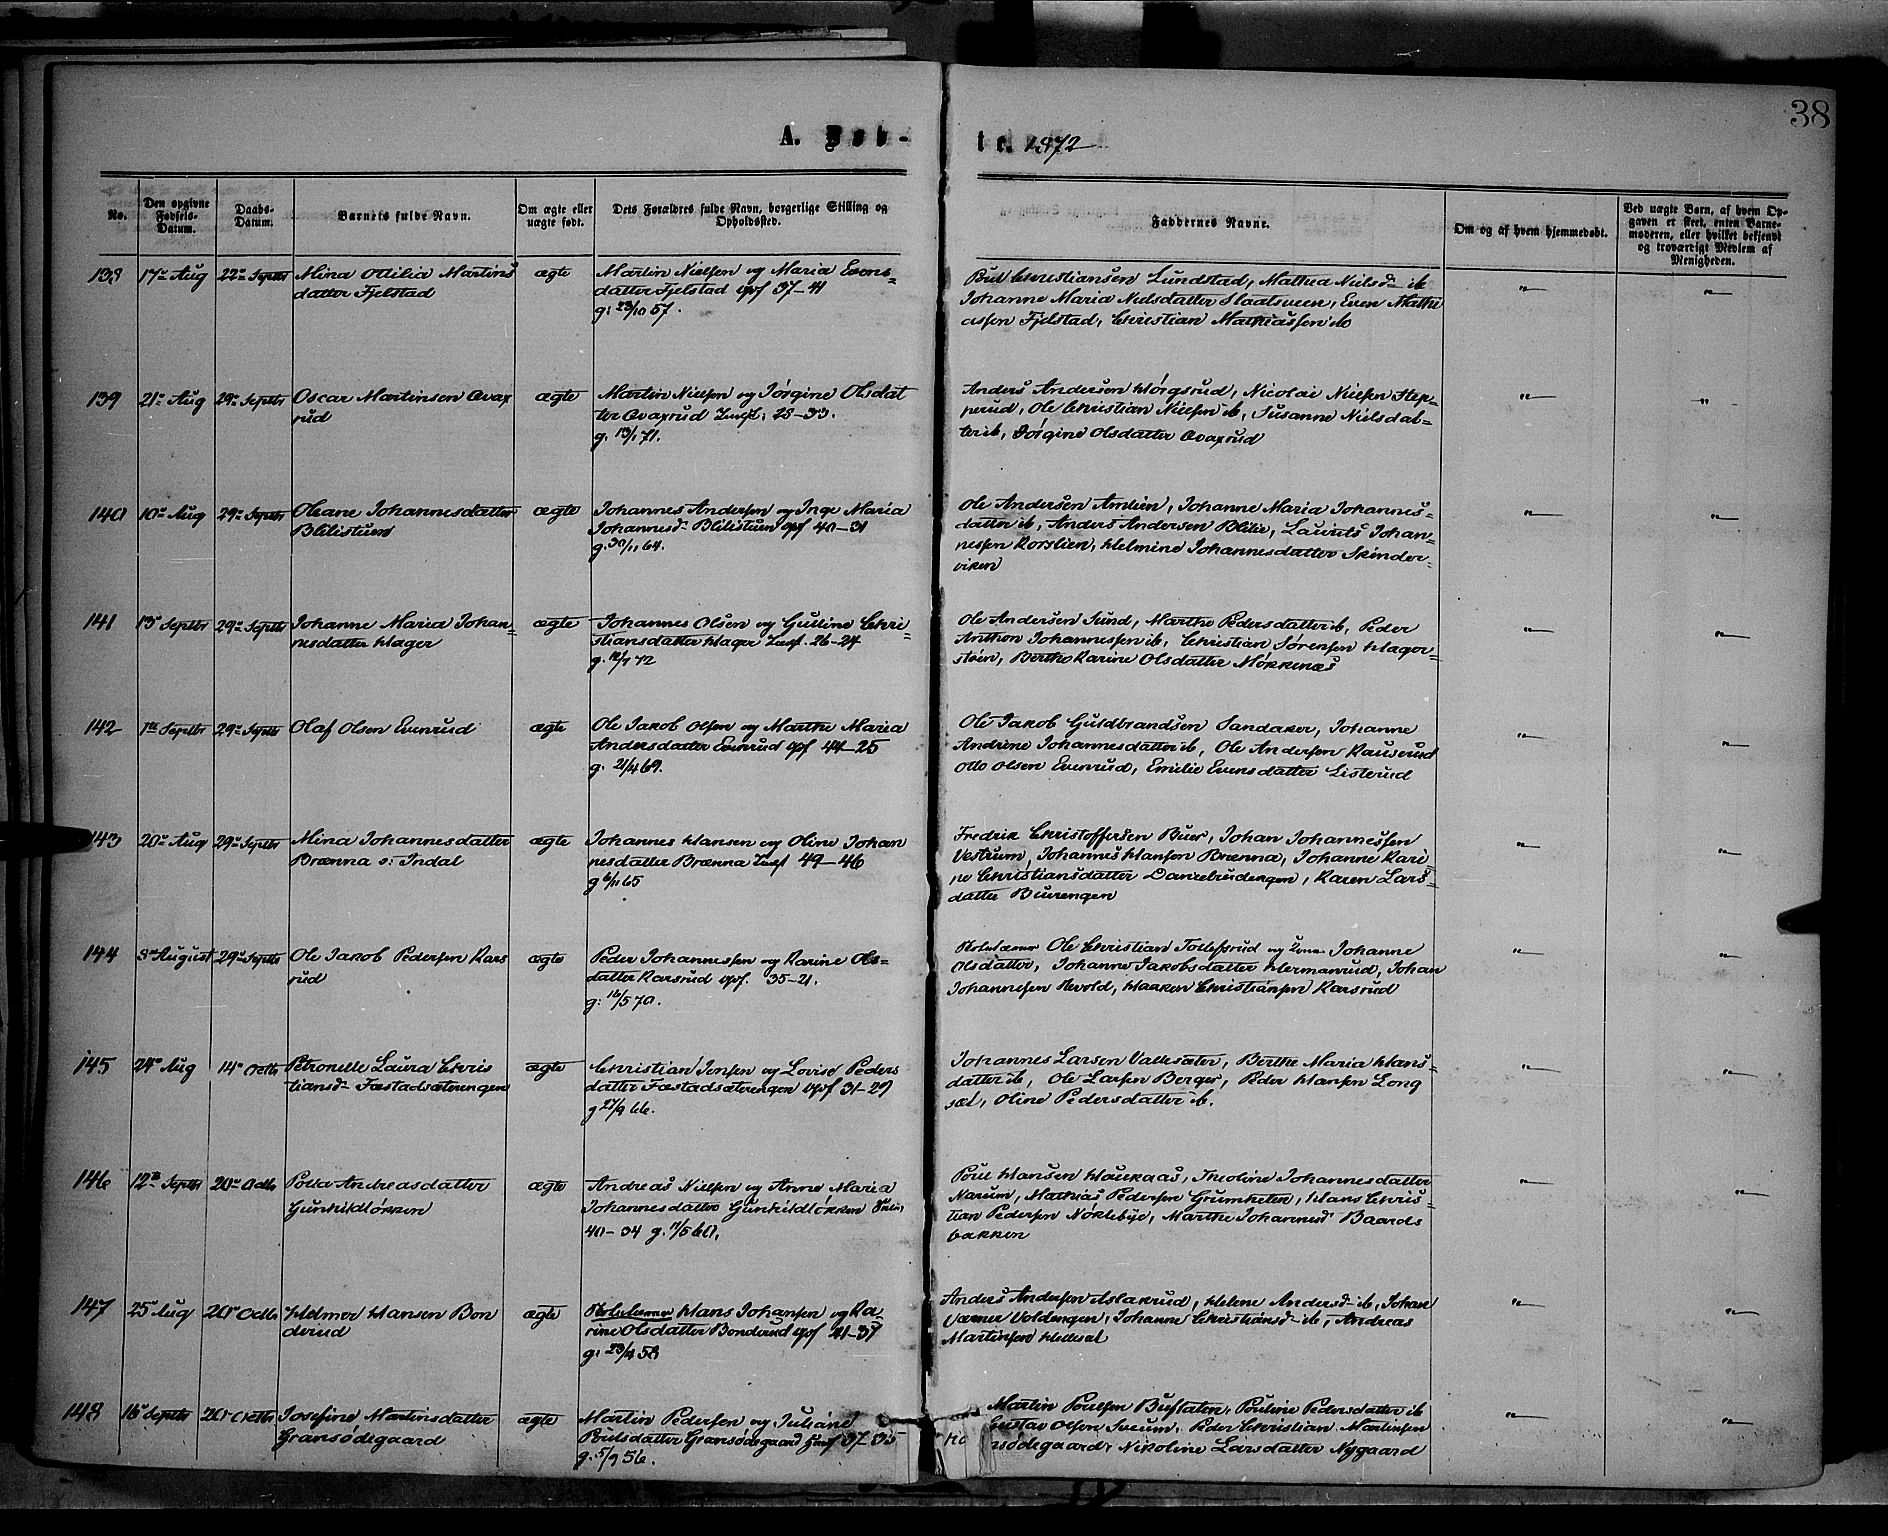 38
A. Døb- te. 1872
No.
Den opgivne Fødsels-Datum.
Daabs-Datum.
Barnets fulde Navn.
Om ægte eller uægte født.
Dets Forældres fulde Navn, borgerlige Stilling og Opholdssted.
Faddernes Navne.
Om og af hvem hjemmedøbt.
Ved uægte Børn, af hvem Opgaven er skeet, enten Barnemoderen, eller hvilket bekjendt og troværdigt Medlem af Menigheden.
138 17de Aug 22de Septbr Mina Ottilia Martins
datter Fjelstad
ægte
Martin Nielsen og Maria Evens-
datter Fjelstad gpf 37-41
g: 23/10 57.
Poul Christiansen Lundstad, Mathea Nielsd. ib
Johanne Maria Nielsdatter Slaatsveen, Even Mathi
assen Fjelstad, Christian Mathiassen ib
139 21de Aug 29de Septbr Oscar Martinsen Qvax
rud
ægte
Martin Nielsen og Jørgine Olsdat
ter Qvaxrud 28-33.
g. 13/1 71.
Anders Andersen Hørgsrud, Nicolai Nielsen Step-
perud, Ole Christian Nielsen ib, Susanne Nielsdat-
ter ib, Jørgine Olsdatter Qvaxrud
140 10de Aug 29de Septbr Oleane Johannesdatter
Blilistuen
ægte
Johannes Andersen og Inge Maria
Johannesd. Blilistuen gpf 40-31
g. 30/11 64.
Ole Andersen Amlien, Johanne Maria Johannes-
datter ib, Anders Andersen Blilie, Laurits Johan-
nessen Korslien, Helmine Johannesdatter Skinder-
viken
141 13de Septbr 29de Septbr Johanne Maria Johan-
nesdatter Hager
ægte
Johannes Olsen og Guline Chri-
stiansdatter Hager 26-27
g. 12/7 72
Ole Andersen Sund, Marthe Pedersdatter ib, Peder
Anthon Johannessen ib, Christian Sørensen Hager-
støen, Berthe Karine Olsdatter Møkkenæs
142 1ste Septbr 29de Septbr Olaf Olsen Evenrud
ægte
Ole Jakob Olsen og Marthe Maria
Andersdatter Evenrud gpf 44-25
g. 21/4 69.
Ole Jakob Guldbrandsen Sandaker, Johanne
Andrine Johannesdatter ib, Ole Andersen Rauserud
Otto Olsen Evenrud, Emilie Evensdatter Listerud
143 20de Aug 29de Septbr Mina Johannesdatter
Brænna s: Indal
ægte
Johannes Hansen og Oline Johan
nesdatter Brænna 49-46
g 6/11 65
Fredrik Christoffersen Buer, Johan Johannessen
Vestrum, Johannes Hansen Brænna, Johanne Kari-
ne Christiansdatter Danxelrudengen, Karen Lars-
datter Buerengen
144 8de August 29de Septbr Ole Jakob Pedersen Kars
rud
ægte
Peder Johannessen og Karine Ols-
datter Karsrud gpf. 35-21.
g: 16/5 70.
Skolelærer Ole Christian Tollefsrud og Kone Johanne
Olsdatter, Johanne Jakobsdatter Hermanrud, Johan
Johannesen Hvold, Haaken Christiansen Karsrud
145 24de Aug 14de Octbr Petronelle Laura Chris
tiansd. Fæstadsæterengen
ægte
Christian Jensen og Lovise Peders
datter Fæstadsæterengen gpf 31-29
g 27/9 66.
Johannes Larsen Vallesæter, Berthe Maria Hans-
datter ib, Ole Larsen Berger, Peder Hansen Long
sæt, Oline Pedersdatter ib.
146 12te Septbr 20de Octbr Polla Andreasdatter
Gunhildløkken
ægte
Andreas Nielsen og Anne Maria
Johannesdatter Gunhildløkken
40-34 g. 11/5 60.
Poul Hansen Haukaas, Theoline Johannesdatter
Narum, Mathias Pedersen Grumheten, Hans Chris-
tian Pedersen Nøklebye, Marthe Johannesd. Baards
bakken
147 25de Aug 20de Octbr Helmer Hansen Bon
derud
ægte
Skolelærer Hans Johansen og Ka-
rine Olsdatter Bonderud gpf 41-37
g: 23/4 58
Anders Andersen Aslakrud, Helene Andersd. ib, Johan
Værner Voldengen, Johanne Christiansd. ib, Andreas
Martinsen Hellesæt
148 16de Septbr 20de Octbr Josefine Martinsdatter
Gransødegaard
ægte
Martin Pedersen og Juliane
Poulsdatter Gransødegaard 37-35
g. 5/9 56.
Martin Poulsen Bustaten, Pouline Pedersdatter ib
Gustav Olsen Sveum, Peder Christian Martinsen
sødegaard, Nikoline Larsdatter Nygaard